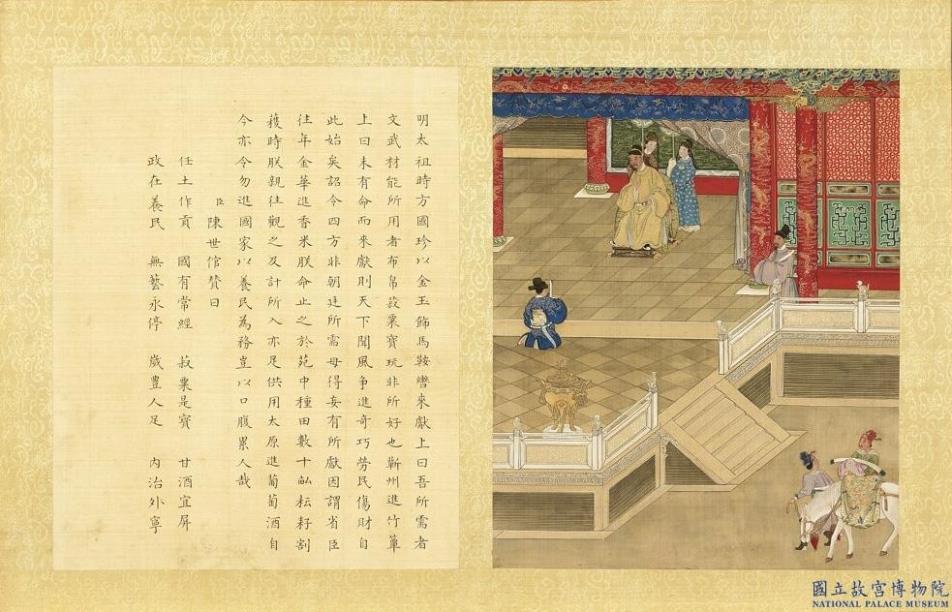 明太祖時方國珍以金玉飾馬鞍轡來獻上曰吾所需者
文武材能所用者布帛菽粟寶玩非所好也蘄州進竹簟
上曰未有命而來獻則天下聞風爭進奇巧勞民傷財自
此始矣詔令四方非朝廷所需毋得妄有所獻因謂省臣
往年金華進香米朕命止之於苑中種田數十畝耘耔割
穫時朕親往觀之及計所入亦足供用太原進葡萄酒自
今亦令勿進國家以養民為務豈以口腹累人哉
臣陳世倌贊曰
任土作貢 國有常經 菽粟是寶 甘酒宜屏
政在養民 無藝永停 歲豊人足 內治外寧
國立故宮博物院
NATIONAL PALACE MUSEUM